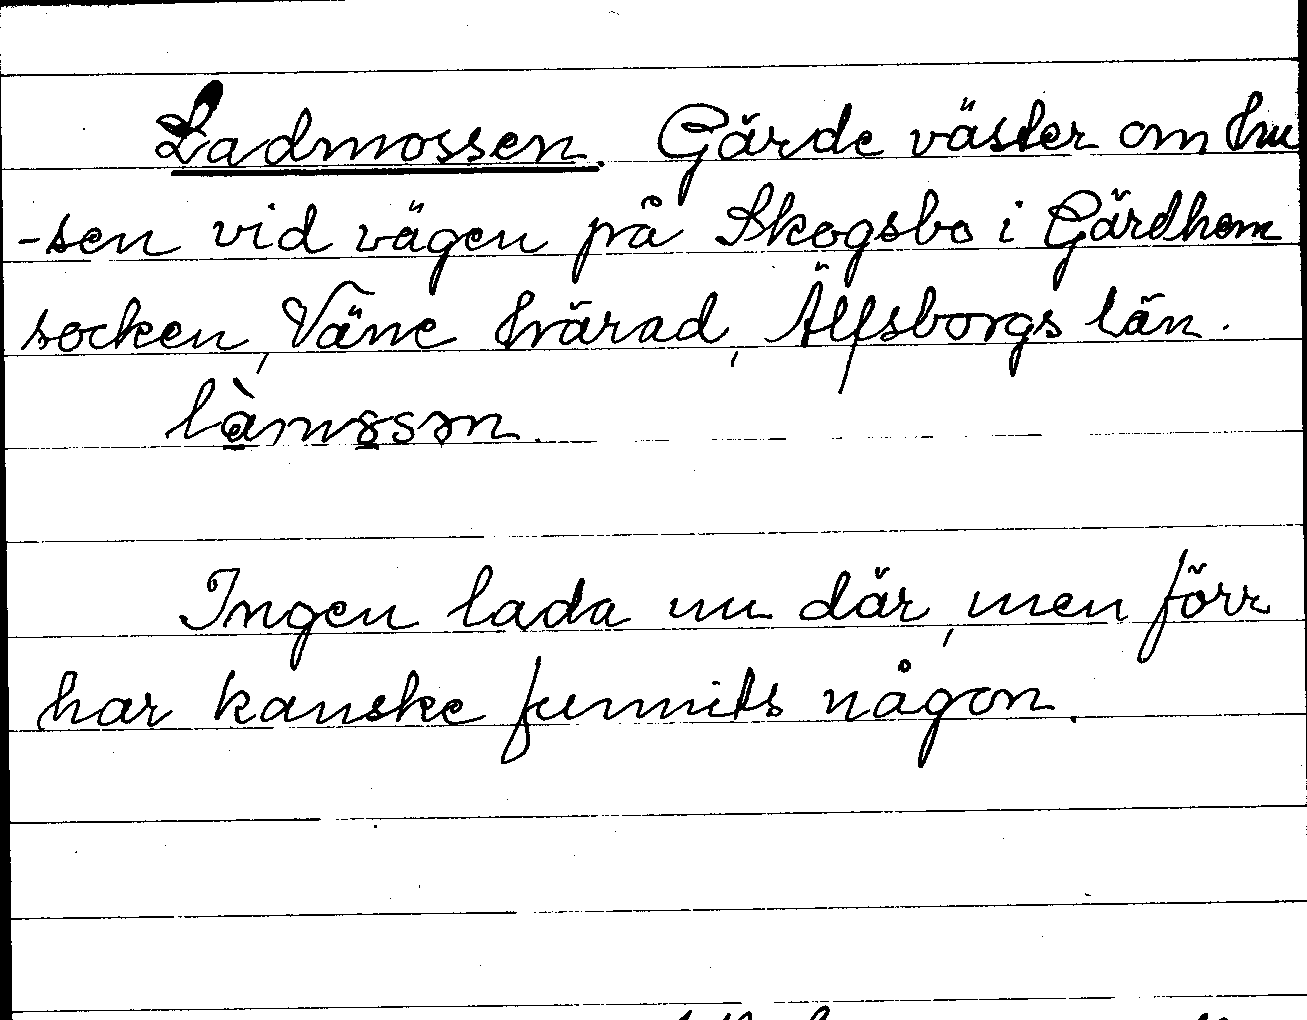 Ladmossen. Gärde väster om hu
-sen vid vägen på Skogsbo i Gärdhem
socken, Väne härad, Älfsborgs län.
Ingen lada nu där, men förr
har kanske funnits någon.